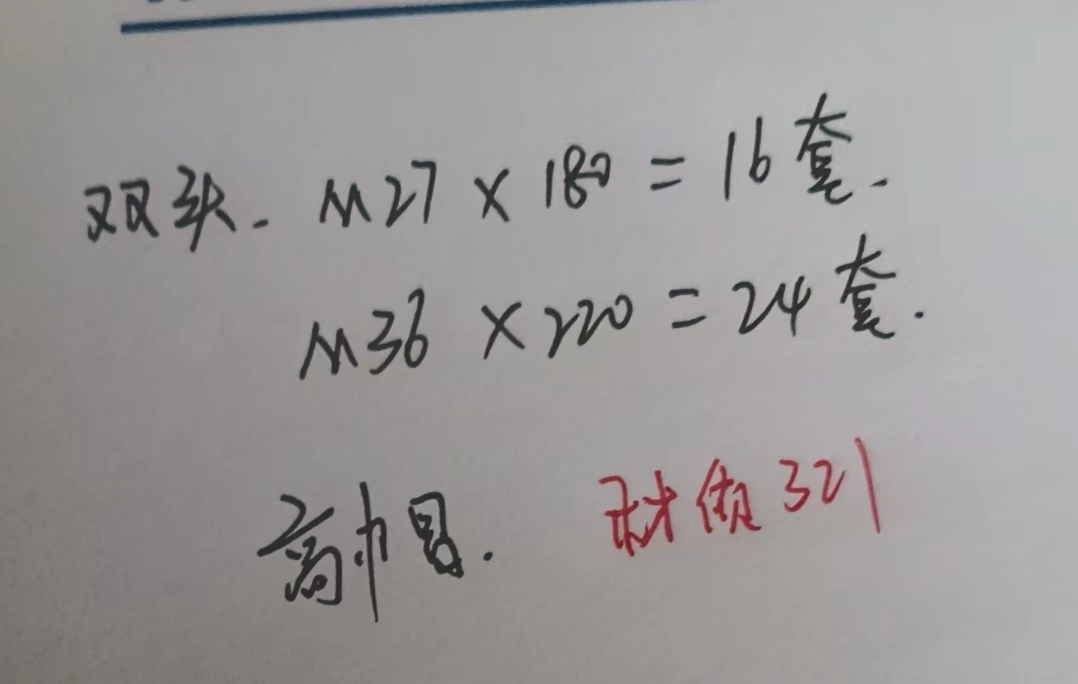 双头. M27 × 180 = 16套.
M36 × 220 = 24套.
高帽. 材质321